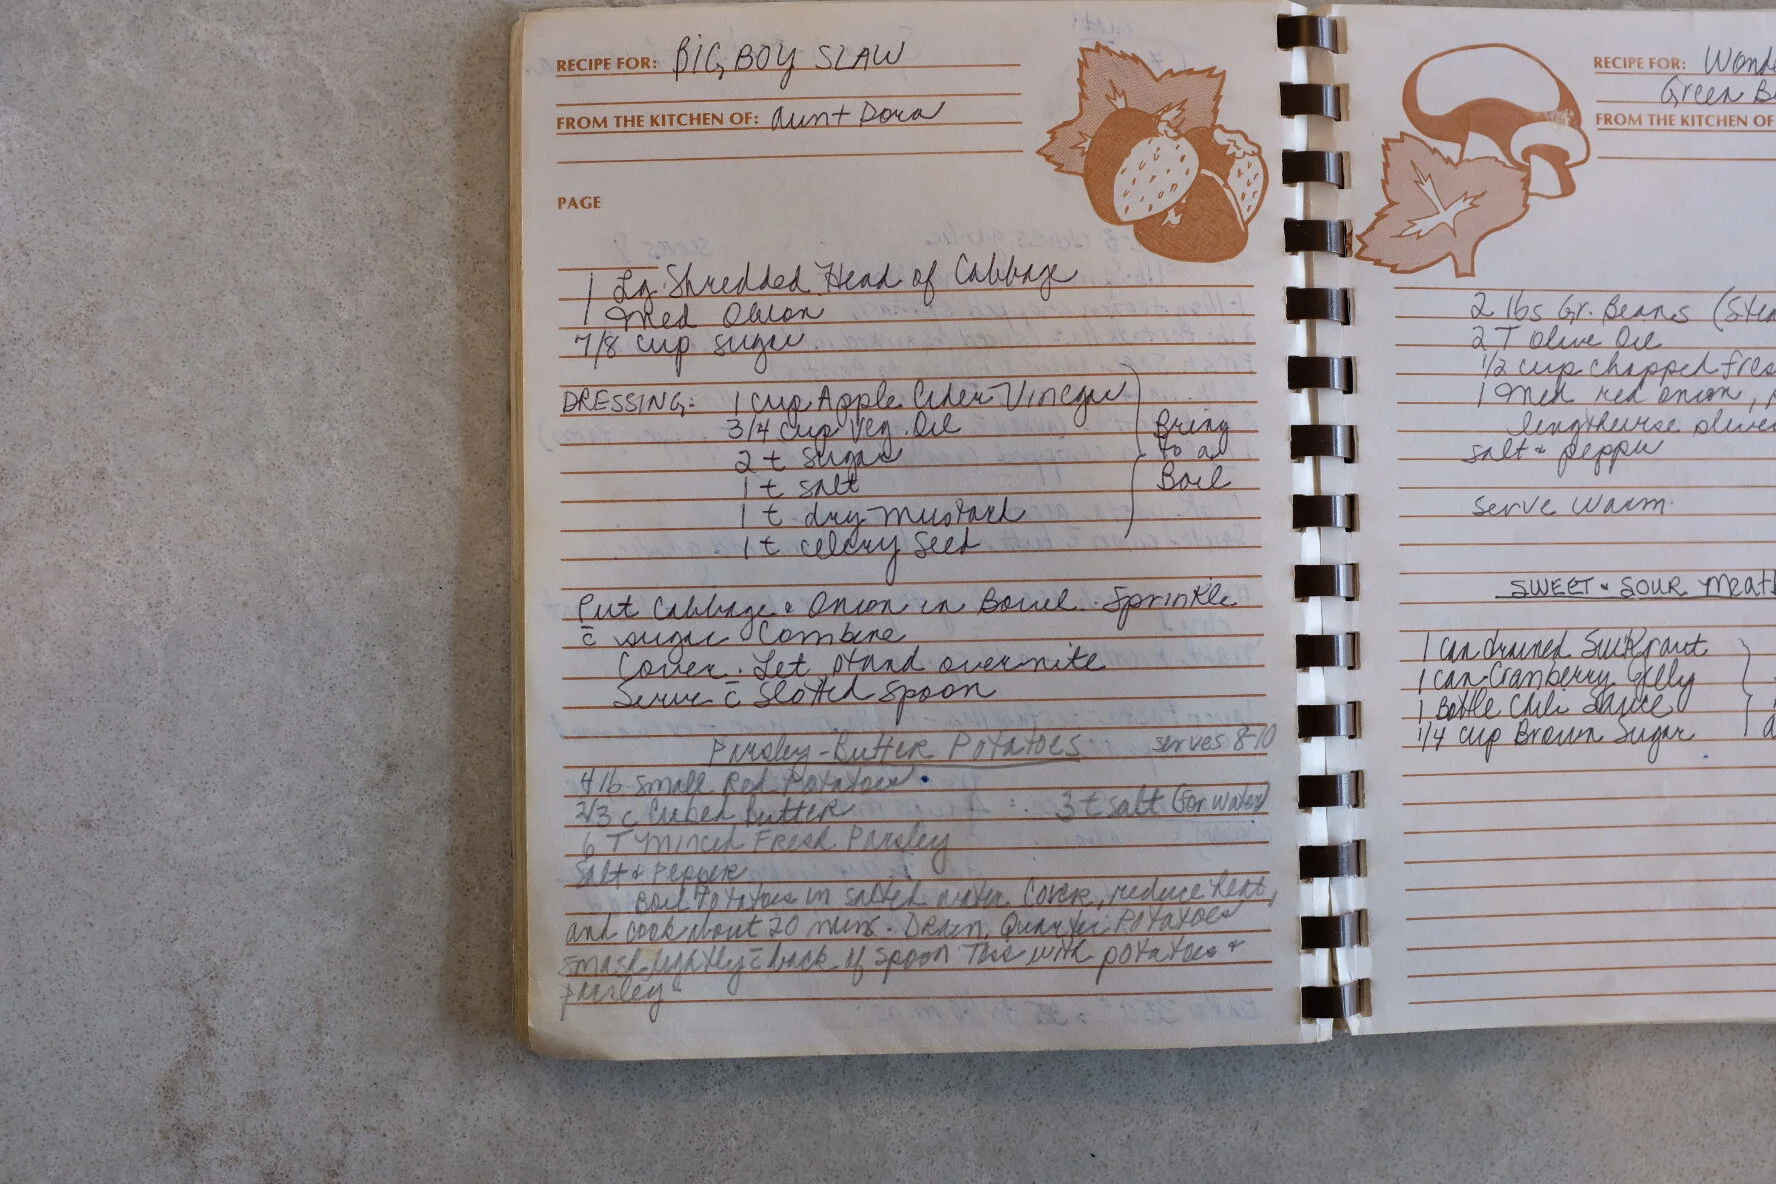 RECIPE FOR: BIG BOY SLAW
FROM THE KITCHEN OF: Aunt Dora
PAGE
1 Lg. Shredded Head of Cabbage
1 Med Onion
7/8 cup sugar
DRESSING: 1 cup Apple Cider Vinegar
3/4 cup Veg. Oil
2 t sugar
1 t salt
1 t dry mustard
1 t celery seed
Bring
to a
Boil
Put Cabbage & Onion in Bowl. Sprinkle
c̄ sugar Combine
Cover. Let stand overnite
Serve c̄ slotted spoon
Parsley-Butter Potatoes serves 8-10
4 lb. small Red Potatoes
2/3 c Cubed Butter 3 t salt (for water)
6 T Minced Fresh Parsley
Salt & Pepper
Boil Potatoes in salted water. Cover, reduce heat,
and cook about 20 mins. Drain, Quarter Potatoes
smash lightly c̄ back of spoon Toss with potatoes &
parsley
RECIPE FOR: Wond
Green B
FROM THE KITCHEN OF
2 lbs Gr. Beans (Stea
2 T Olive Oil
1/2 cup chopped fres
1 Med red onion,
lengthwise
salt & pepper
serve warm.
SWEET & SOUR Meat
1 can drained
1 can Cranberry Jelly
1 Bottle Chili Sauce
1/4 cup Brown Sugar